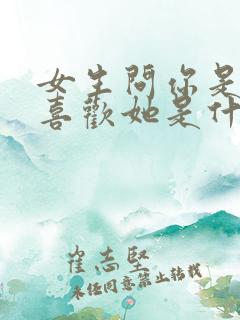 女生問你是
喜歡她是什
崔志堅
未经同意禁止转载